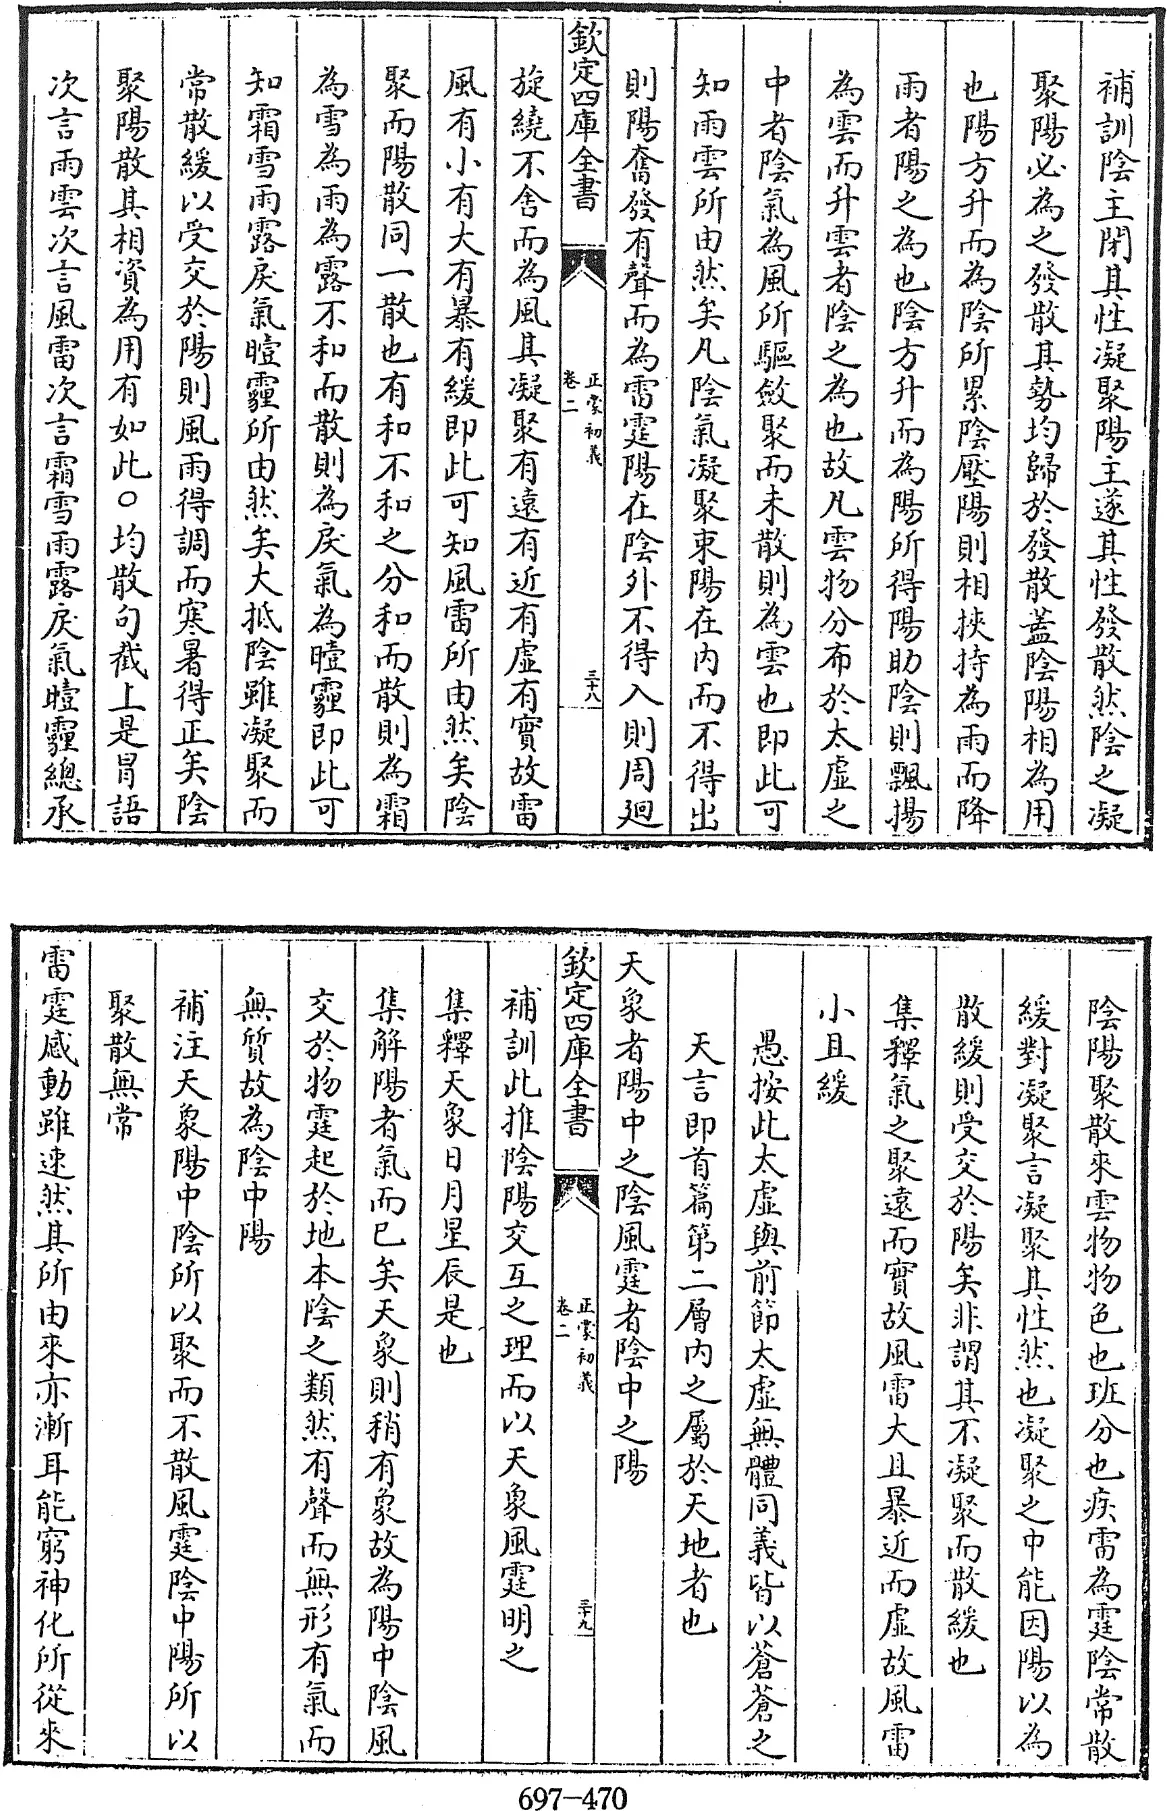 補訓陰主閉其性凝聚陽主遂其性發散然陰之凝
聚陽必為之發散其勢均歸於發散蓋陰陽相為用
也陽方升而為陰所累陰壓陽則相挾持為雨而降
雨者陽之為也陰方升而為陽所得陽助陰則飄揚
為雲而升雲者陰之為也故凡雲物分布於太虛之
中者陰氣為風所驅斂聚而未散則為雲也即此可
知雨雲所由然矣凡陰氣凝聚束陽在内而不得出
則陽奮發有聲而為雷霆陽在陰外不得入則周廻
欽定四庫全書
正蒙初義
卷二
三十八
旋繞不舍而為風其凝聚有遠有近有虛有實故雷
風有小有大有暴有緩即此可知風雷所由然矣陰
聚而陽散同一散也有和不和之分和而散則為霜
為雪為雨為露不和而散則為戾氣為曀霾即此可
知霜雪雨露戾氣曀霾所由然矣大抵陰雖凝聚而
常散緩以受交於陽則風雨得調而寒暑得正矣陰
聚陽散其相資為用有如此○均散句截上是冒語
次言雨雲次言風雷次言霜雪雨露戾氣曀霾總承
陰陽聚散來雲物物色也班分也疾雷為霆陰常散
緩對凝聚言凝聚其性然也凝聚之中能因陽以為
散緩則受交於陽矣非謂其不凝聚而散緩也
集釋氣之聚遠而實故風雷大且暴近而虛故風雷
小且緩
愚按此太虛與前節太虛無體同義皆以蒼蒼之
天言即首篇第二層内之屬於天地者也
天象者陽中之陰風霆者陰中之陽
欽定四庫全書
正蒙初義
卷二
三十九
補訓此推陰陽交互之理而以天象風霆明之
集釋天象日月星辰是也
集解陽者氣而已矣天象則稍有象故為陽中陰風
交於物霆起於地本陰之類然有聲而無形有氣而
無質故為陰中陽
補注天象陽中陰所以聚而不散風霆陰中陽所以
聚散無常
雷霆感動雖速然其所由來亦漸耳能窮神化所從來
697-470